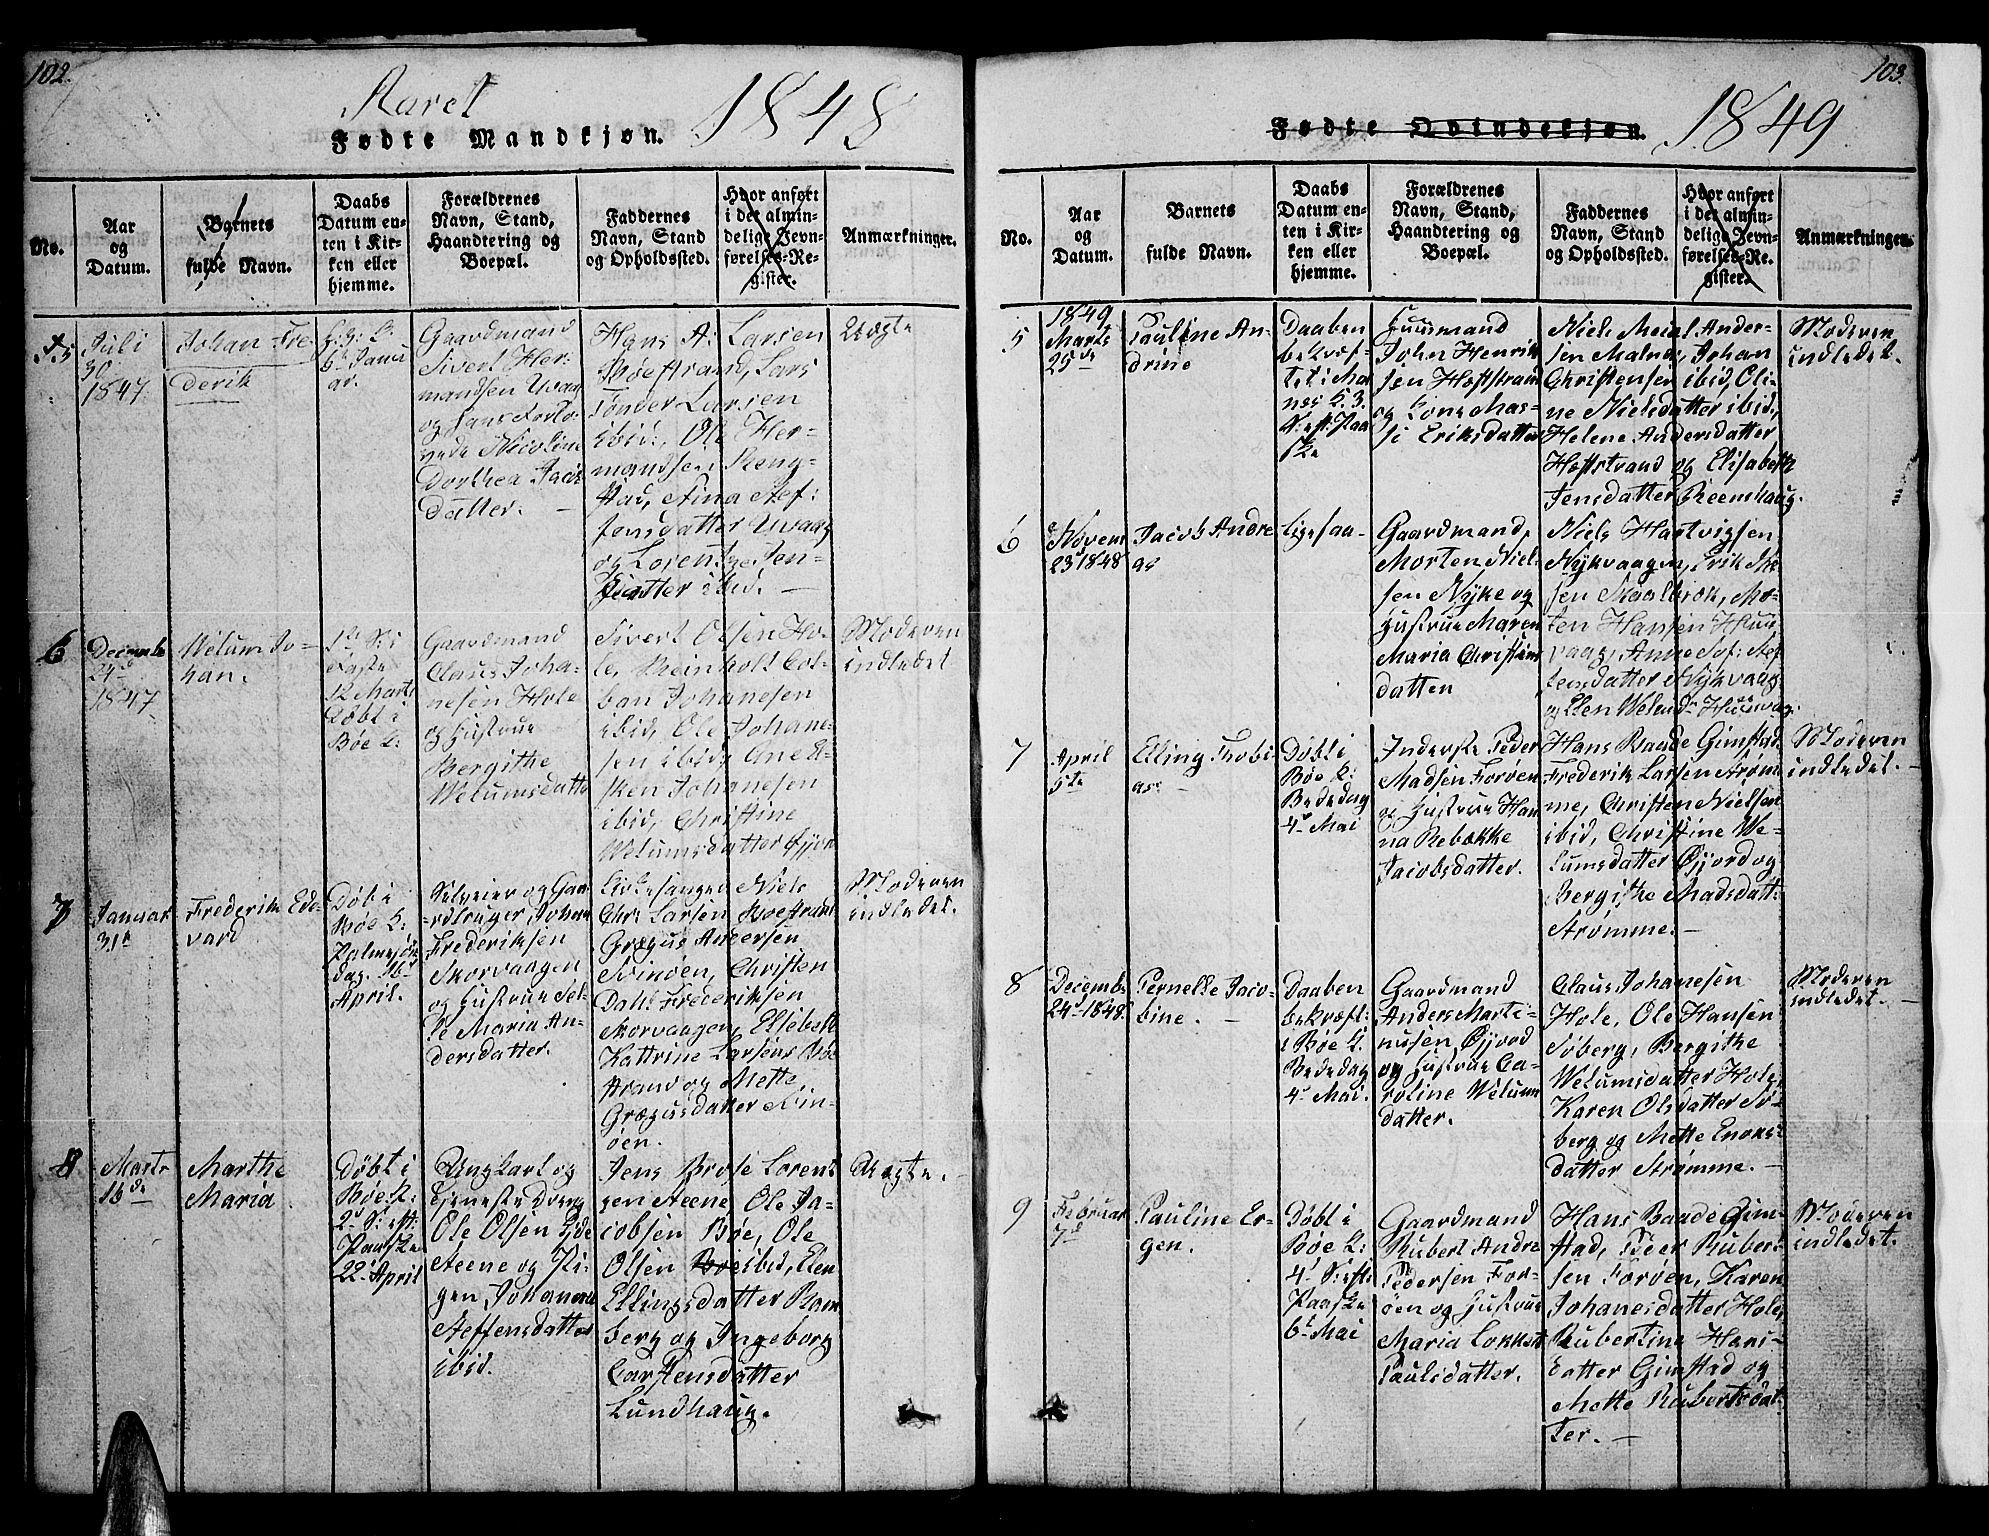 102.
Aaret 1848
Fødte Mandkjøn.
No.
Aar
og
Datum.
Barnets
fulde Navn.
Daabs
Datum en-
ten i Kir-
ken eller
hjemme.
Forældrenes
Navn, Stand,
Haandtering og
Boepæl.
Faddernes
Navn, Stand
og Opholdssted.
Hvor anført
i det almin-
delige Jevn-
førelses-Re-
gister.
Anmærkninger.
5
Juli
30
1847
Johan Fre-
derik
6te Janu
ar.
Gaardmand
Sivert Her-
mandsen Uvaag
og
Nicoline
Dorthea
datter. —
Hans A: Larsen
Bøestrand, Lars
Tønder Larsen
ibid:, Ole Her-
mandsen Steng-
stad, Stina Stef:
fensdatter Uvaag
og Lorentze Jen-
datter ibid. —
Uægte
6
Decembr
24d
1847
Welum Jo-
han.
1te S: i
Faste
12 Marts
Døbt i
Bøe K:
Gaardmand
Claus Joha-
nesen Hole
og Hustrue
Bergithe
Welumsdatter
Sivert Olsen Ho-
le, Reinholt Col-
ban Johanesen
ibid, Ole Johane-
sen ibid, Ane E-
sken Johanesen
ibid, Christine
Welumsdatter Øjjord
Moderen
indledet
7
Januar
31te
Frederik Ed-
vard
Døbt i
Bøe K:
Palmesøn
dag. 16d
April.
Selveier og Gaa
rdbruger Johan
Frederiksen
Skorvaagen
og Hustrue Sel-
le Maria An-
dersdatter.
Kirkesanger Niels
Chr: Larsen Bøestrand
Grægus Andersen
Svinøen, Christen
Dahl Frederiksen
Skorvaagen, Elsebeth
Kattrine Larsens Bøe
strand og Mette
Grægusdatter Svin-
øen.
Moderen
indledet.
8
Marts
16de
Marthe
Maria
Døbt i
Bøe K:
2d S: eft:
Paaske
22d April
Ungkarl og
tjenestedreng
Ole Olsen Eide
Steene og Pi-
gen Johanna
Steffensdatter
ibid.
Jens Brose Lorent
zen Steene, Ole Ja-
cobsen Bøe, Ole
Olsen ibid, Elen
Ellingsdatter Ram
berg og Ingeborg
Carstensdatter
Lundhaug.
Uægte.
103.
Fødte Qvindekjøn. 1849
No.
Aar
og
Datum.
Barnets
fulde Navn.
Daabs
Datum en-
ten i Kir-
ken eller
hjemme.
Forældrenes
Navn, Stand,
Haandtering og
Boepæl.
Faddernes
Navn, Stand
og Opholdssted.
Hvor anført
i det almin-
delige Jevn-
førelses-Re-
gister.
Anmærkninger.
5
1849
Marts
25de
Pauline An-
drine
Daaben
bekræf-
tet i Mal
nes K. 3.
S: eft: Paa
ske
Huusmand
John Henrik
sen Hæftstrand
og Kone Mas-
si Eriksdatter
Niels Meier Ander-
sen Malnes, Johan
Christensen ibid, Oli-
ne Nielsdatter ibid,
Helene Andersdatter
Hæftstrand og Elisabeth
Jensdatter Reenshaug.
Moderen
indledet.
6
Novem
23d 1848
Jacob Andre
as
ligesaa-
Gaardmand,
Morten Niel-
sen Nyke og
Hustrue Maren
Maria Christens
datter
Niels Hartvigsen
Nykvaagen, Erik
sen Skaalbræk, Mo-
ten Hansen Huu
vaag, Anne Sof: Stef
fensdatter Nykvaag
og Elen Welumdr Huuvaag.
7
April
5te
Elling Tobi-
as. —
Døbt i
Bøe K:
Bededag
4d Mai
Inderste Peder
Madsen Forøen
og Hustrue Han
na Rebække
Jacobsdatter.
Hans Baade Gimstad
Frederik Larsen Strøm
me, Christen Nielsen
ibid, Christine We-
lumsdatter Øjjord og
Bergithe Madsdatt-
Strømme. —
Moderen
indledet. —
8
Decembr
24d 1848.
Pernelle Jaco-
bine. —
Daaben
bekræft:
i Bøe K.
Bededag
4d Mai.
Gaardmand
Anders Marti-
nusen Øjjord
og Hustrue Ca-
roline Welums
datter.
Claus Johanesen
Hole, Ole Hansen
Søberg, Bergithe
Welumsdatter Hole,
Karen Olsdatter Sø-
berg og Mette Enoks-
datter Strømme. —
Moderen
indledet. —
9
Februar
7d
Pauline Er-
gen.
Døbt i
Bøe K:
4d S: eft:
Paaske
6te Mai
Gaardmand
Rubert Andre
Pedersen For-
øen og Hustrue
Maria Lokket
Paulsdatter.
Hans Baade Gim-
stad, Peer Rubert
sen Forøen, Karen
Johanesdatter Hole,
Rubertine Hans-
datter Gimstad og
Mette Rubertsdat-
ter. —
Moderen
indledet.